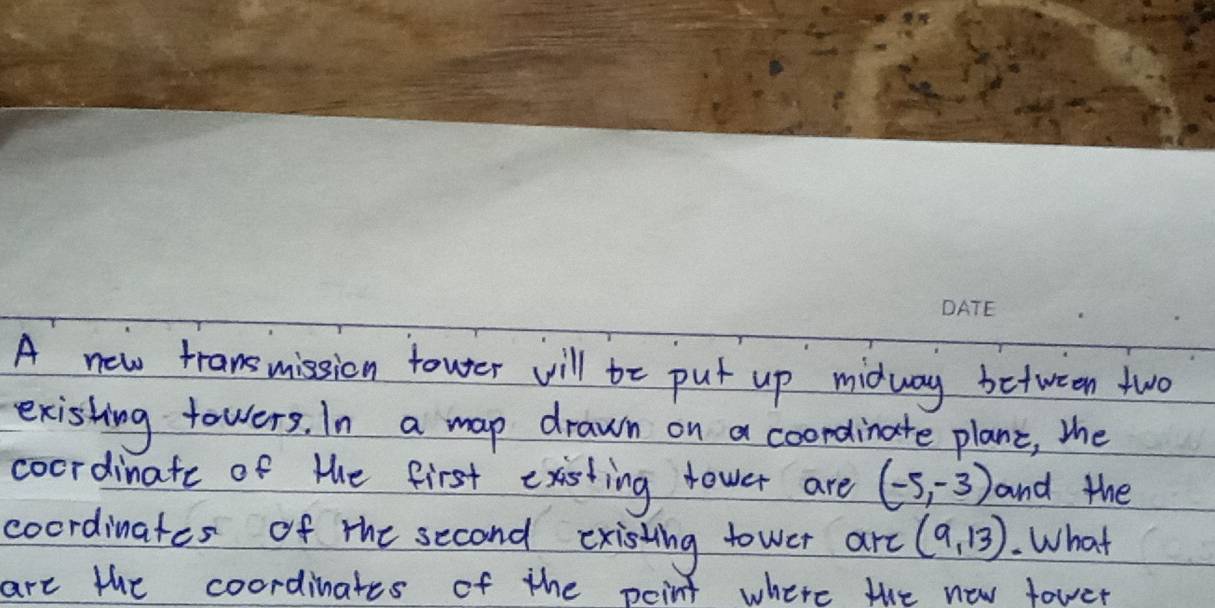 DATE
A new transmission tower will be put up midway between two
existing towers. In a map drawn on a coordinate plane, the
coordinate of the first existing tower are (-5,-3) and the
coordinates of the second existing tower are (9,13). What
are the coordinates of the point where the new tower